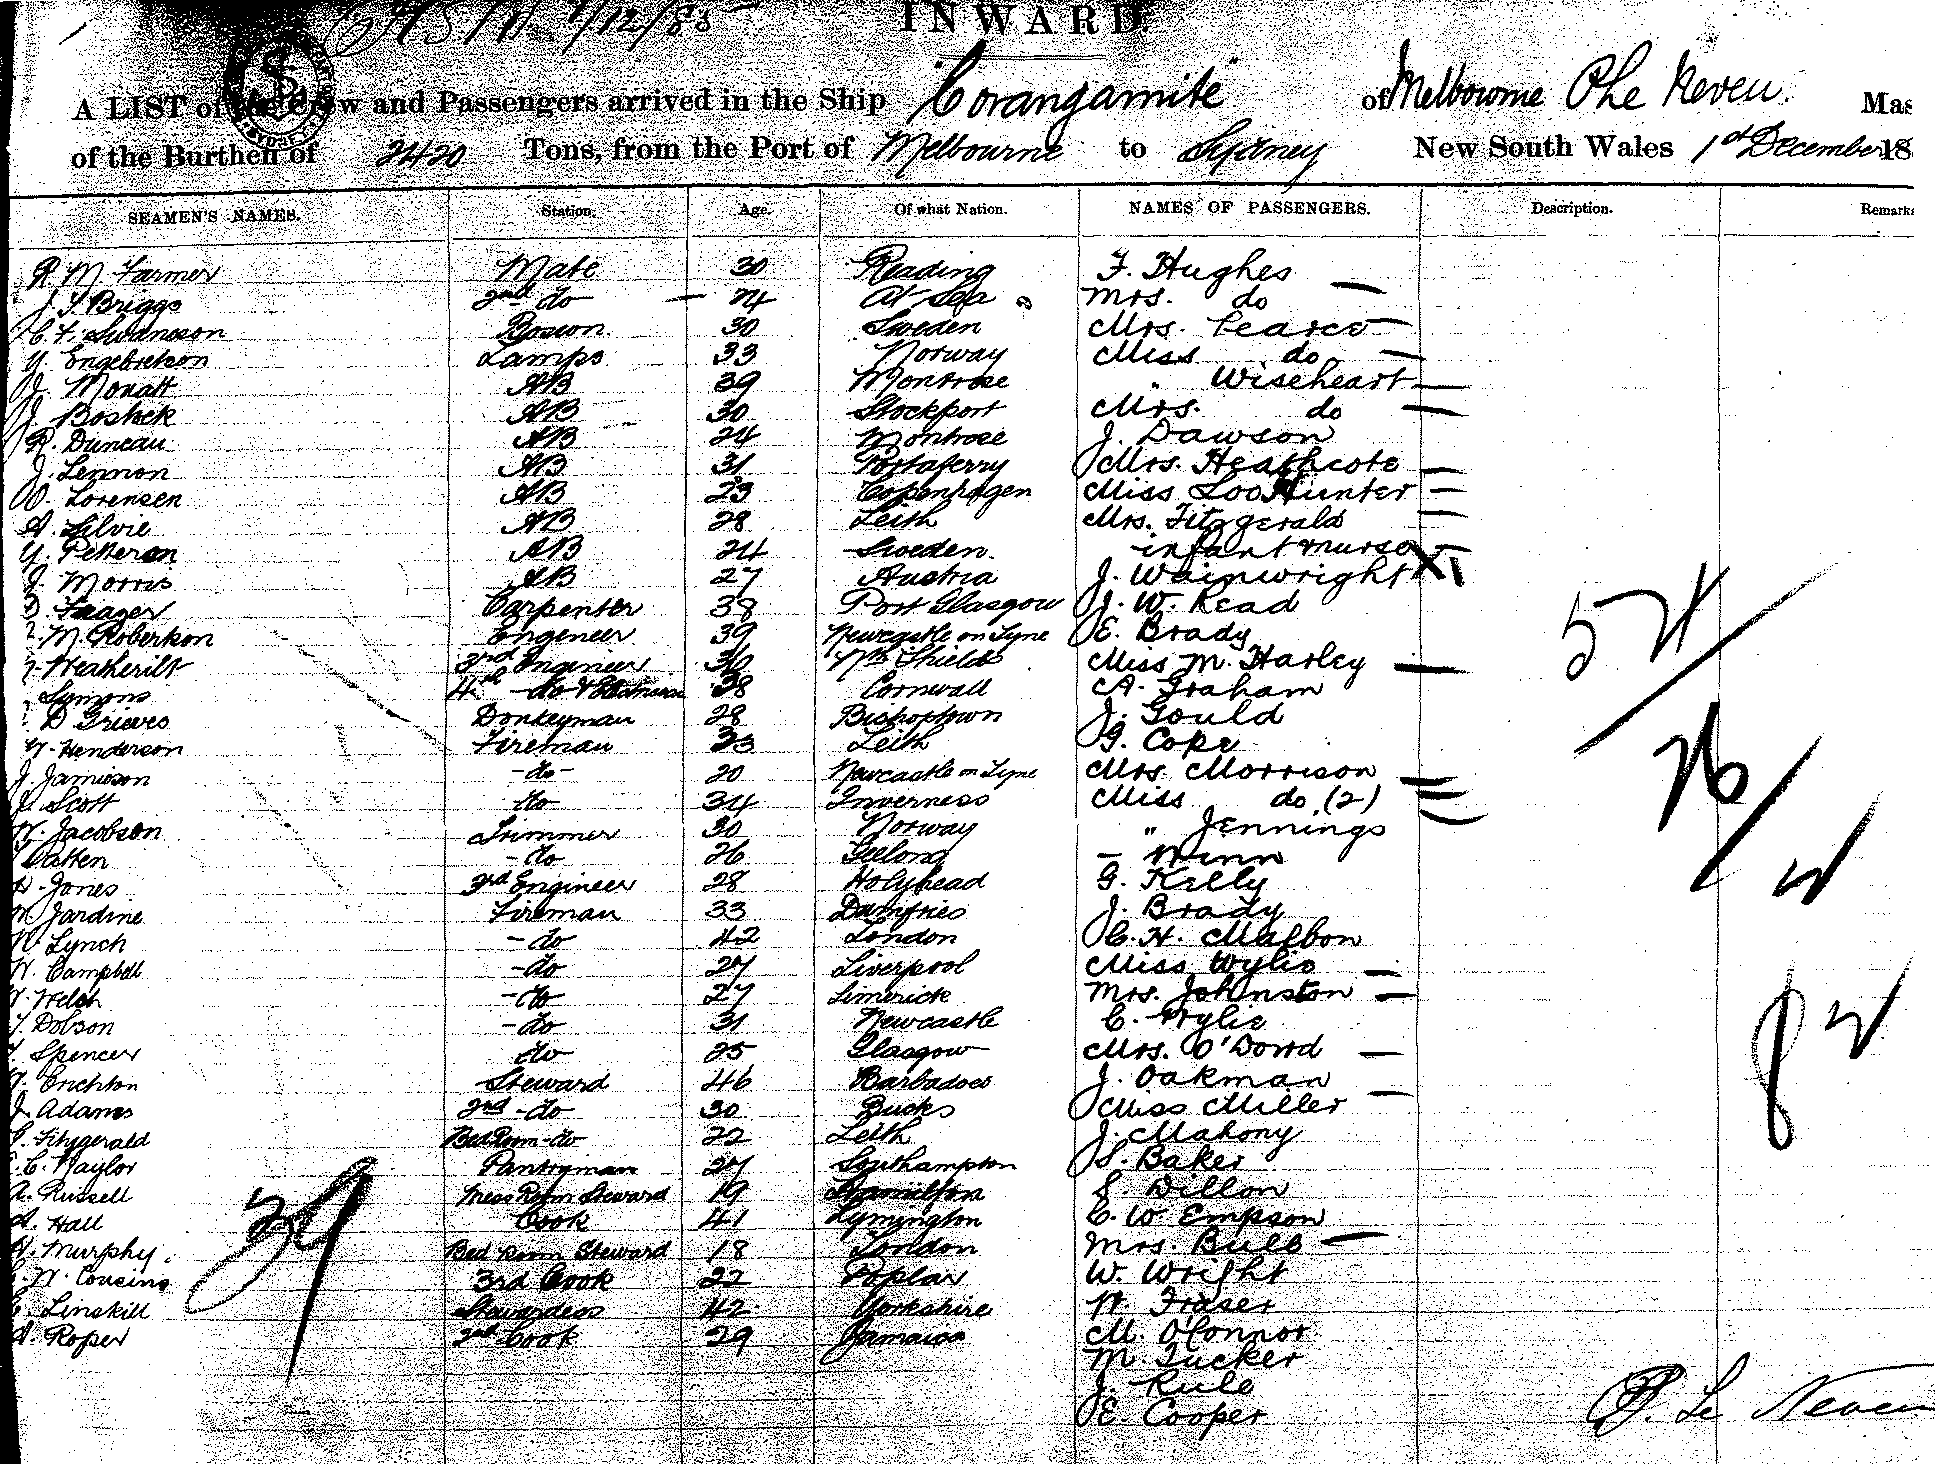 7/12/85
INWARD.
A LIST of the Crew and Passengers arrived in the Ship "Corangamite" of Melbourne Mas
of the Burthen of 2420 Tons, from the Port of Melbourne to Sydney New South Wales 1st December 18
SEAMEN'S NAMES. Station. Age. Of what Nation. NAMES OF PASSENGERS. Description. Remarks
R. M. Farmer Mate 30 Reading F. Hughes —
J. T. Briggs 2nd do — 24 At Sea Mrs. do
C. F. Swaneson Boson 30 Sweden Mrs. Pearce —
Y. Engebretson Lamps 33 Norway Miss do —
J. Mouatt AB 39 Montrose " Wiseheart —
J. Boshek AB 30 Stockport Mrs. do —
R. Duncan AB 24 Montrose J. Dawson
J. Lennon AB 31 Portaferry Mrs. Heathcote —
O. Lorensen AB 23 Copenhagen Miss Loo Hunter —
A. Silvie AB 28 Leith Mrs. Fitzgerald —
Y. Petterson AB 24 Sweden infant & nurse —
J. Morris AB 27 Austria J. Wainwright
D. Frazer Carpenter 38 Port Glasgow J. W. Read
M. Roberton Engeneer 39 Newcastle on Tyne E. Brady
Weatherilt 3rd Engineer 30 Nth Shields Miss M. Harley —
Symons 4th do 28 Cornwall A. Graham
D Grieves Donkeyman 28 Bishoptown J. Gould
Y. Henderson Fireman 23 Leith G. Cope
J. Jamieson - do - 20 Newcastle on Tyne Mrs. Morrison —
J. Scott do 34 Inverness Miss do (2)
W. Jacobson Trimmer 30 Norway " Jennings
Patten - do 26 Geelong — Winn
D. Jones 3rd Engineer 28 Holyhead G. Kelly
W Jardine Fireman 33 Dumfries J. Brady
W. Lynch - do 42 London C. H. Malbon
W. Campbell - do 27 Liverpool Miss Wylie —
Welch - do 27 Limerick Mrs. Johnston —
Dobson - do 31 Newcastle C. Wylie
Spencer do 25 Glasgow Mrs. O'Dowd —
Crichton Steward 46 Barbadoes J. Oakman
J. Adams 2nd - do 30 Bucks Miss Miller —
G. Fitzgerald Bed Room - do 22 Leith J. Mahony
C. Naylor Pantryman 27 Southampton S. Baker
A. Russell Mess Room Steward 19 Hamilton S. Dillon
A. Hall Cook 41 Lymington C. W Empson
H. Murphy. Bed room Steward 18 London Mrs. Bull —
W. Cousins 3rd Cook 22 Poplar W. Wright
E. Linskill Stewardess 42 Yorkshire W. Fraser
A. Roper 2nd Cook 29 Jamaica M. O'Connor
M. Tucker
J. Rule
E. Cooper
39
P. Le Neven